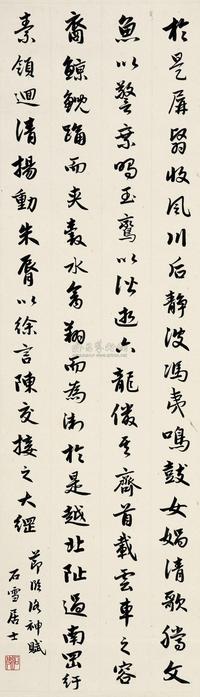 於是屏翳收風川后靜波馮夷鳴鼓女媧清歌騰文
魚以警乘鳴玉鸞以偕逝六龍儼其齊首載雲車之容
裔鯨鯢踊而夾轂水禽翔而為衛於是越北沚過南岡紆
素領迴清揚動朱脣以徐言陳交接之大綱
節臨洛神賦
石雪居士